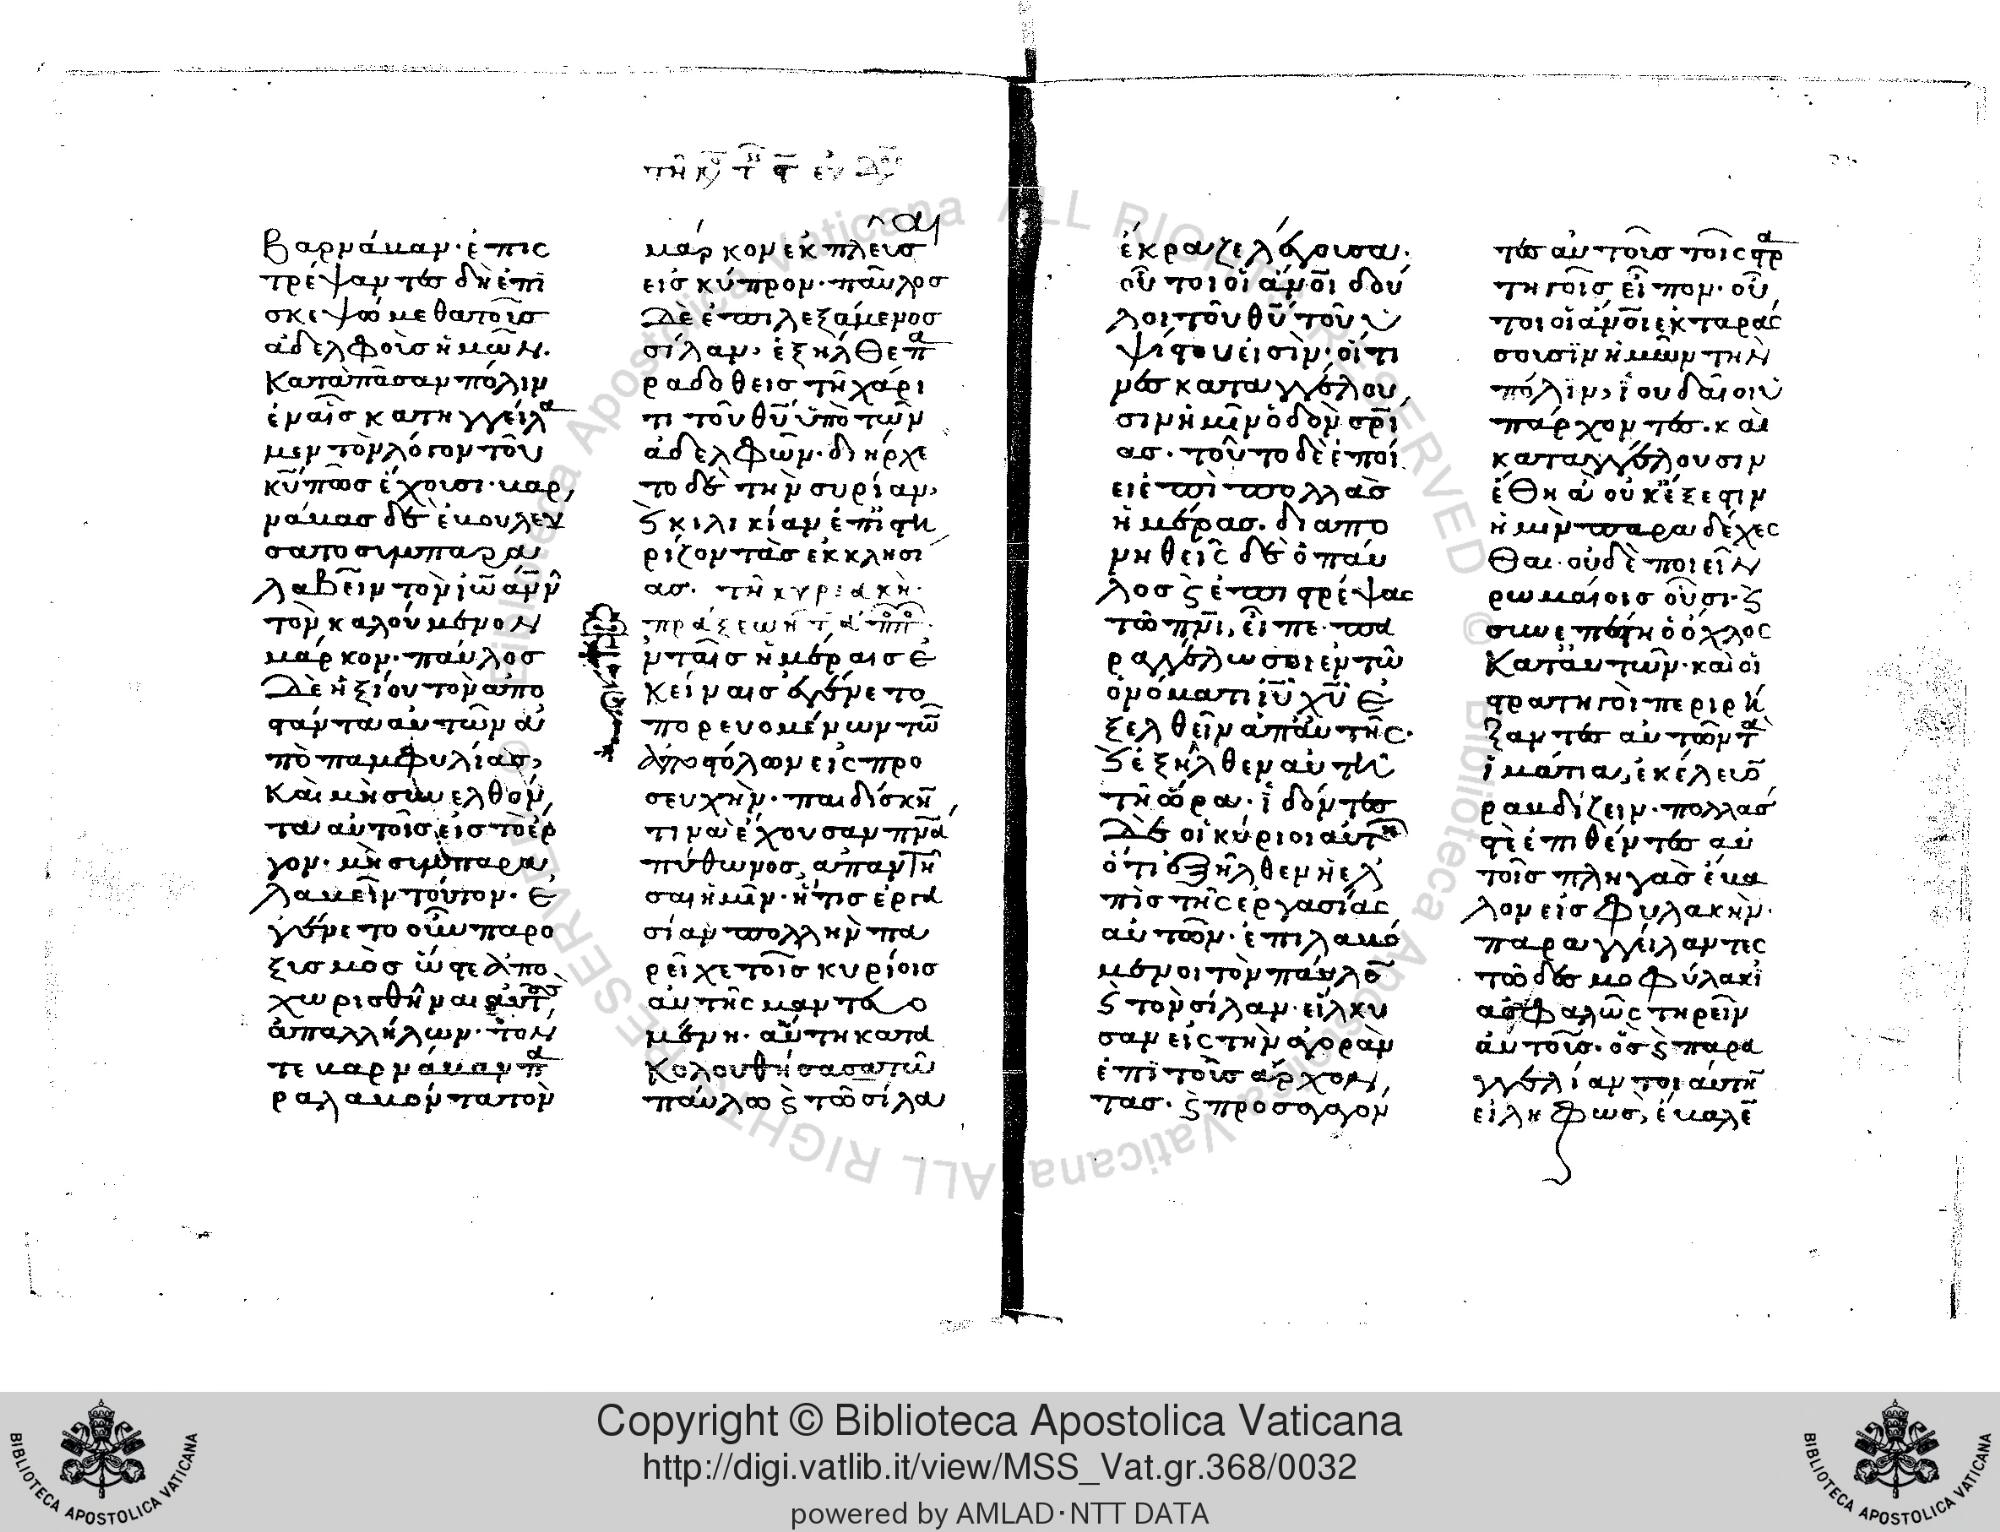 βαρνάβαν· ἐπισ
τρέψαντες δὴ ἐπι
σκεψώμεθα τοῖς
ἀδελφοῖς ἡμῶν·
κατὰ πᾶσαν πόλιν
ἐν αἷς κατηγγείλα
μεν τὸν λόγον τοῦ
κυ πῶς ἔχουσι· βαρ
νάβας δὲ ἐβουλεύ
σατο συμπαρα
λαβεῖν τὸν ἰωάννην
τὸν καλούμενον
μάρκον· παύλος
δὲ ἠξίου τὸν ἀπο
σταντα αυτῶν ἀ
πὸ παμφυλίας,
καὶ μὴ συνελθόν
τα αὐτοῖς εἰς τὸ ἔρ
γον· μὴ συμπαρα
λαβεῖν τοῦτον· ἐ
γένετο οὖν παρο
ξυσμὸς ὥστε ἀπο
χωρισθῆναι αὐτοὺς
ἀπαλλήλων· τὸν
τε βαρνάβαν πα
ραλαβόντα τὸν
τῆ κυ
μάρκον ἐκπλεῦσαι
εἰς κύπρον· παῦλος
δὲ ἐπιλεξάμενος
σίλαν, ἐξῆλθε πα
ραδοθεὶς τῆ χάρι
τι τοῦ θυ ὑπὸ τῶν
ἀδελφῶν· διήρχε
το δὲ τὴν συρίαν,
ϛ κιλικίαν ἐπιστη
ρίζων τὰς ἐκκλησί
ας· τῆ κυριακῆ
πράξεων τῶν
Ἐν ταῖς ἡμέραις ἐ
κείναις ἐγένετο
πορευομένων τῶν
ἀποστόλων εἰς προ
σευχὴν· παιδίσκην
τινὰ ἔχουσαν πνα
πύθωνος, ἀπαντῆ
σαι ἡμῖν· ἥτις ἐργα
σίαν πολλὴν πα
ρεῖχε τοῖς κυρίοις
αὐτῆς μαντευο
μένη· αὕτη κατα
κολουθήσασα τῶ
παύλω ϛ τῶ σίλα
ἔκραζε λέγουσα·
οὗτοι οἱ ἄνοι δοῦ
λοι τοῦ θυ τοῦ ὑ
ψίστου εἰσὶν· οἵτι
νες καταγγέλου
σιν ἡμῖν ὁδὸν σρί
ας· τοῦτο δὲ ἐποί
ει ἐπὶ πολλὰς
ἡμέρας· διαπο
νηθεὶς δὲ ὁ παῦ
λος ϛ ἐπιστρέψας
τῶ πνι, εἶπε· πα
ραγγέλω σοι ἐν τῶ
ὀνόματι ιυ χυ ἐ
ξελθεῖν ἀπ' αὐτῆς·
ϛ ἐξῆλθεν αὐτῆ
τῆ ὥρα· ἰδόντες
δὲ οἱ κύριοι αὐτῆς
ὅτι ἐξῆλθεν ἡ ελ
πὶς τῆς ἐργασίας
αὐτῶν· ἐπιλαβό
μενοι τὸν παῦλον
ϛ τὸν σίλαν· εἵλκυ
σαν εἰς τὴν ἀγορὰν
ἐπὶ τοὺς ἄρχον
τας· ϛ προσαγαγόν
τες αὐτοὺς τοῖς στρα
τηγοῖς εἶπον· οὗ
τοι οἱ ἄνοι ἐκταράσ
σουσιν ἡμῶν τὴν
πόλιν, ἰουδαῖοι ὑ
πάρχοντες· καὶ
καταγγέλουσιν
ἔθη ἃ οὐκ ἔξεστιν
ἡμὶν παραδέχεσ
θαι· οὐδὲ ποιεῖν
ρωμαίοις οὖσι· ϛ
συνεπέστη ὁ ὄχλος
κατ' αὐτῶν· καὶ οἱ
στρατηγοὶ περιρή
ξαντες αὐτῶν τὰ
ἱμάτια, ἐκέλευον
ραβδίζειν· πολλάς
τε ἐπιθέντες αὐ
τοῖς πληγὰς ἔβα
λον εἰς φυλακὴν·
παραγγείλαντες
τῶ δεσμοφύλακι
ἀσφαλῶς τηρεῖν
αὐτοὺς· ὃς ϛ παρα
γγελίαν τοιαύτην
εἰληφὼς, ἔβαλεν
Copyright © Biblioteca Apostolica Vaticana
http://digi.vatlib.it/view/MSS_Vat.gr.368/0032
powered by AMLAD·NTT DATA
BIBLIOTECA APOSTOLICA VATICANA
BIBLIOTECA APOSTOLICA VATICANA